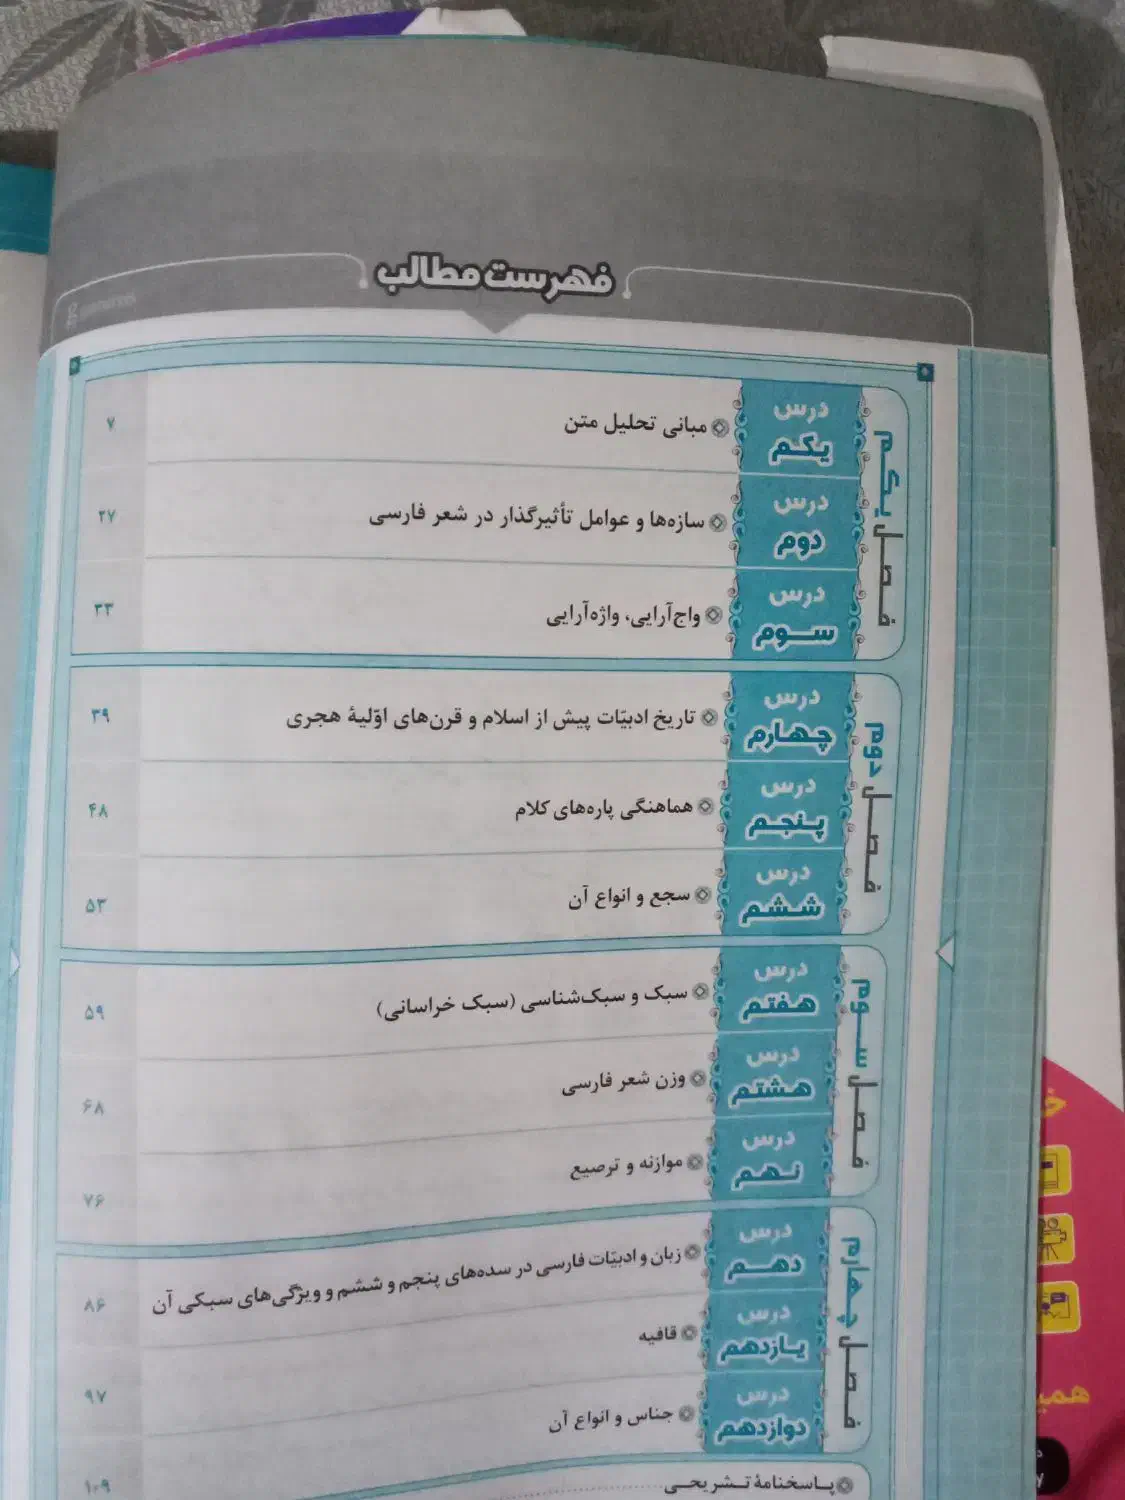 فهرست مطالب
فصل یکم
درس یکم مبانی تحلیل متن ۷
درس دوم سازه‌ها و عوامل تأثیرگذار در شعر فارسی ۲۷
درس سوم واج‌آرایی، واژه‌آرایی ۳۳
فصل دوم
درس چهارم تاریخ ادبیّات پیش از اسلام و قرن‌های اوّلیهٔ هجری ۳۹
درس پنجم هماهنگی پاره‌های کلام ۴۸
درس ششم سجع و انواع آن ۵۳
فصل سوم
درس هفتم سبک و سبک‌شناسی (سبک خراسانی) ۵۹
درس هشتم وزن شعر فارسی ۶۸
درس نهم موازنه و ترصیع ۷۶
فصل چهارم
درس دهم زبان و ادبیّات فارسی در سده‌های پنجم و ششم و ویژگی‌های سبکی آن ۸۶
درس یازدهم قافیه ۹۷
درس دوازدهم جناس و انواع آن
پاسخنامهٔ تشریحی ۱۰۹